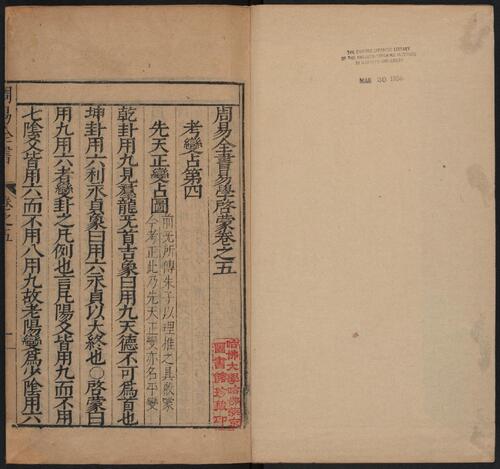 THE CHINESE-JAPANESE LIBRARY
OF THE HARVARD-YENCHING INSTITUTE
AT HARVARD UNIVERSITY
MAR 30 195
周易全書易學啓蒙卷之五
考變占第四
先天正變占圖
前无所傳朱子以理推之具啟蒙
今考正此乃先天正變亦名平變
乾卦用九見羣龍无首吉象曰用九天德不可為首也
坤卦用六利永貞象曰用六永貞以大終也○啓蒙曰
用九用六者變卦之凡例也言凡陽爻皆用九而不用
七陰爻皆用六而不用八用九故老陽變爲少陰用六
周易全書
卷之五
一
哈佛大學哈佛燕京
圖書館珍藏印